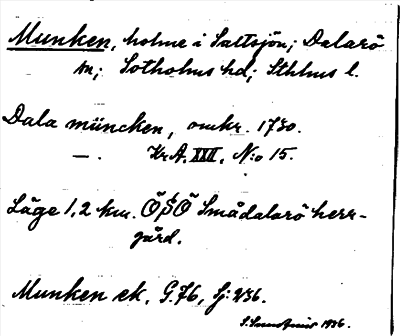 Munken, holme i Saltsjön; Dalarö
sn; Sotholms hd; Sthlms l.
Dala müncken, omkr. 1730.
—. Kr.A. XXII, N:o 15.
Läge 1,2 km. ÖSÖ Smådalarö herr-
gård.
Munken ek. G.76, Sj: 236.
1936.